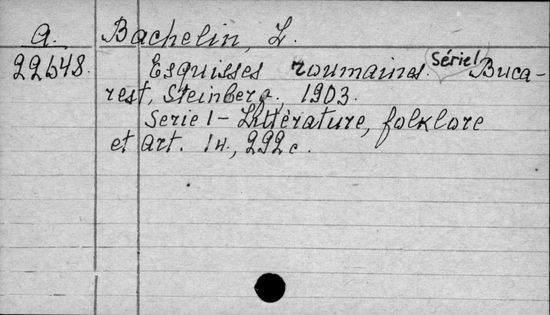 A. Bachelin, L.
22648. Esquisses roumaines. Série 1 Buca-
rest, Steinberg, 1903.
Serie 1 - Littérature, folklore
et art. 14, 292 c.